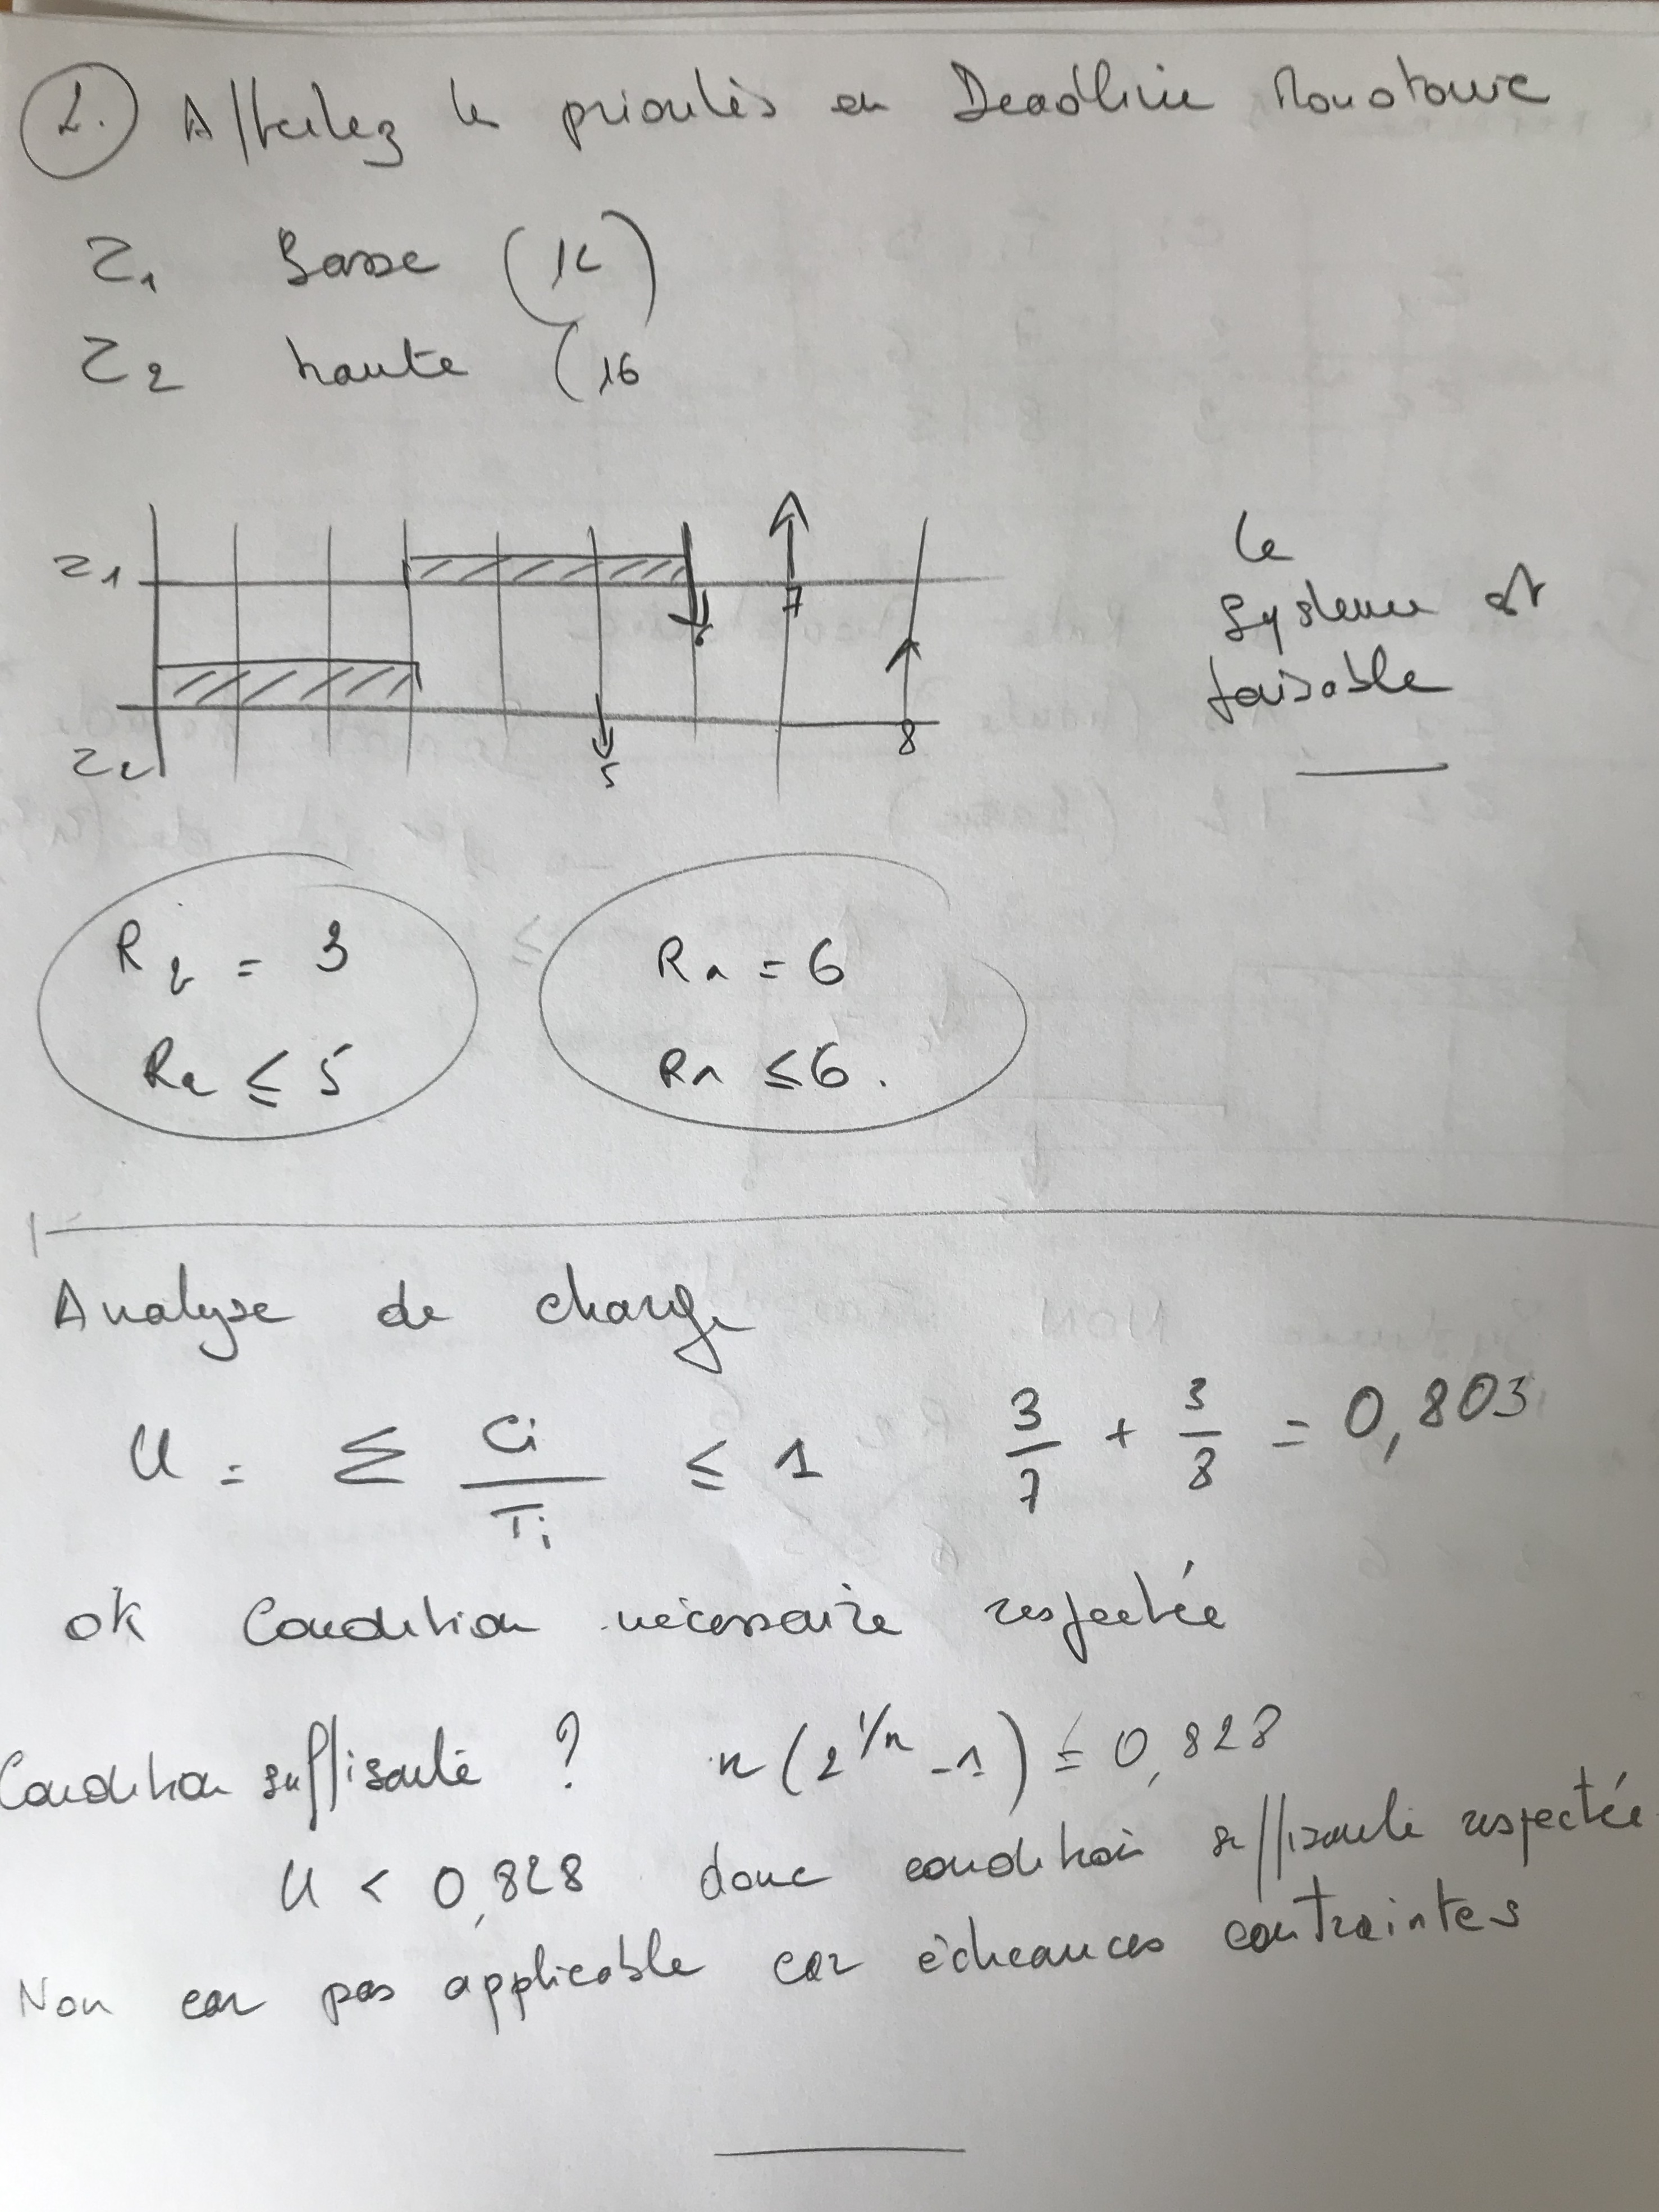 2. Affectez les priorités en Deadline Monotonic
τ1 basse (12)
τ2 haute (16
τ1
τ2
5
6
7
8
Le
système est
faisable
R2 = 3
R2 ≤ 5
R1 = 6
R1 ≤ 6.
Analyse de charge
U = Σ Ci/Ti ≤ 1 3/7 + 3/8 = 0,803
OK Condition nécessaire respectée
Condition suffisante ? n(2^1/n - 1) ≤ 0,828
U < 0,828 donc condition suffisante respectée
Non car pas applicable car échéances contraintes